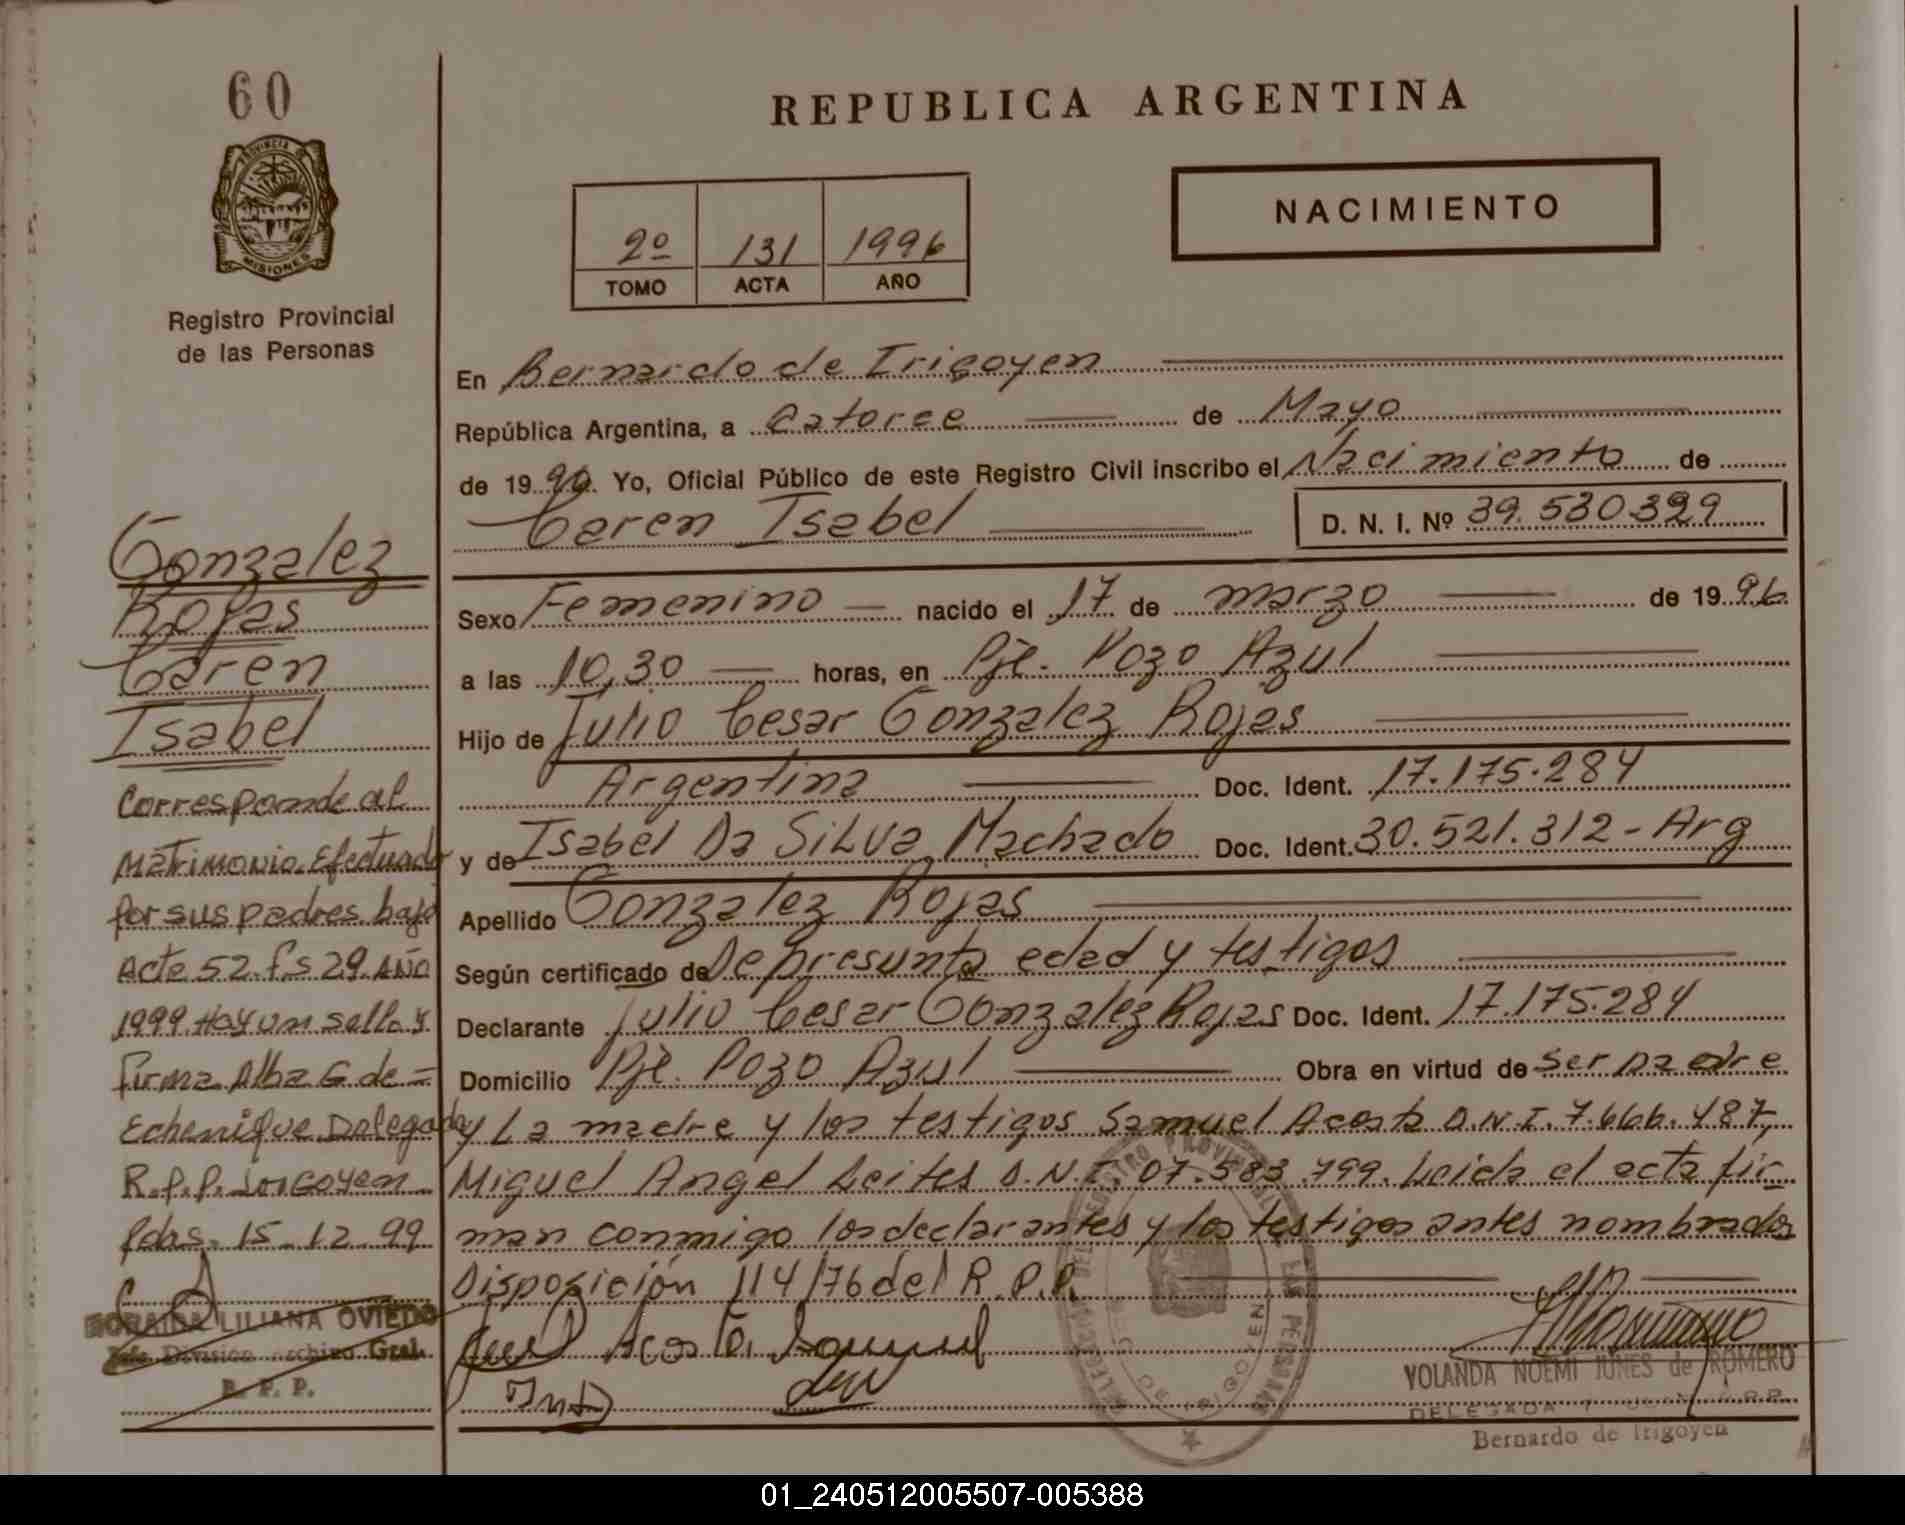 60
PROVINCIA DE
MISIONES
Registro Provincial
de las Personas
REPUBLICA ARGENTINA
NACIMIENTO
2º 131 1996
TOMO ACTA AÑO
En Bernardo de Irigoyen
República Argentina, a Catorce de Mayo
de 1996. Yo, Oficial Público de este Registro Civil inscribo el Nacimiento de
Caren Isabel D. N. I. Nº 39.530.399
Sexo Femenino nacido el 17 de marzo de 1996
a las 10,30 horas, en Pje. Pozo Azul
Hijo de Julio Cesar Gonzalez Rojas
Argentina Doc. Ident. 17.175.284
y de Isabel Da Silva Machado Doc. Ident. 30.521.312 - Arg
Apellido Gonzalez Rojas
Según certificado de De presunta edad y testigos
Declarante Julio Cesar Gonzalez Rojas Doc. Ident. 17.175.284
Domicilio Pje. Pozo Azul Obra en virtud de ser padre
y La madre y los testigos Samuel Acosta D.N.I. 7.666.487,
Miguel Angel Leites D.N.I. 07.583.799. Leida el acta fir-
man conmigo los declarantes y los testigos antes nombrados
Disposición 114/76 del R.P.P.
Acosta Samuel
YOLANDA NOEMI JUNES de ROMERO
DELEGADA
Bernardo de Irigoyen
Gonzalez
Rojas
Caren
Isabel
Corresponde al
Matrimonio Efectuado
por sus padres bajo
Acta 52 fs 29 AÑO
1999 Hay un sello y
firma Alba G de =
Echenique Delegada
R.P.P. Irigoyen
Pdas. 15-12-99
ZORAIDA LILIANA OVIEDO
Jefe Division Archivo Gral.
R. P. P.
01_240512005507-005388